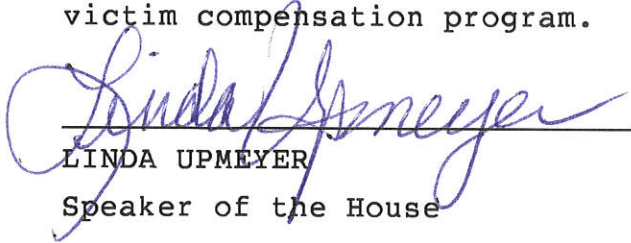 victim compensation program.
Linda Upmeyer
LINDA UPMEYER
Speaker of the House